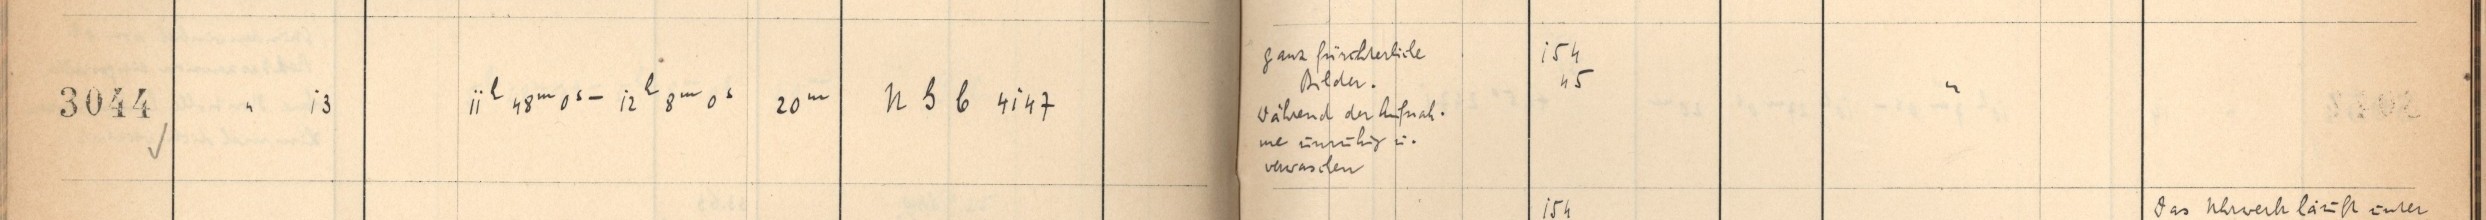 3044 " 13 11h 48m 0s – 12h 8m 0s 20m N G C 4147
ganz fürchterliche 154
Bilder. 45
Während der Aufnah- "
me unruhig u.
verwaschen
154 Das Uhrwerk läuft unter